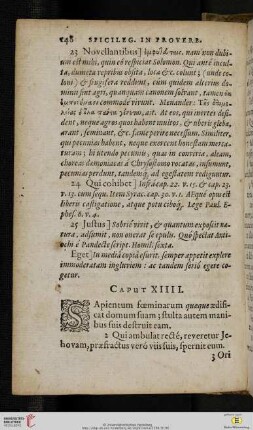 148 SPICILEG. IN PROVERB.
23 Novellantibus] nam non dubium
est mihi, quin eò respexerit Solomon. Qui ante inculta,
dumeta repribus obsita, loca &c. colunt; (unde coloni)
& frugifera reddunt, cùm quidem alterius domini
sint agri, quanquam canonem solvant, tamen
commodè vivunt. Menander:
At eos, qui inertes desident,
neque agros quos habent omittos, & uberis glebæ,
arant, seminant, &c. fame perire necessum. Similiter,
qui pecunias habent, neque exercent honestam mercaturam;
bi utendo pecuniis, quas in convivia, aleam,
choreas demoniacas & Chrysostomo vocatas, insumunt,
pecunias perdunt, tandemq; ad egestatem rediguntur.
24 Qui cohibet] Infrà cap. 22. v. 15. & cap. 23.
v. 13. cum seqq. Item Syrac. cap. 30. v. 1. Æquè opus est
liberis castigatione, atque potu cibóq;. Lege Paul. Ephes.
6. v. 4.
25 Justus] Sobriè vivit, & quantum exposcit natura,
adsumit, non autem se epulis. Quò spectat Antiochi
è Pandecte script. Homil. sexta.
Eget] In media copia esurit, semper appetit explere
immoderatam ingluviem: ac tandem seriò egere cogetur.
CAPUT XIIII.
Sapientum fœminarum quæque ædificat
domum suam; stulta autem manibus
suis destruit eam.
2 Qui ambulat rectè, reveretur Jehovam,
præfractus verò viis suis, spernit eum.
3 Ori